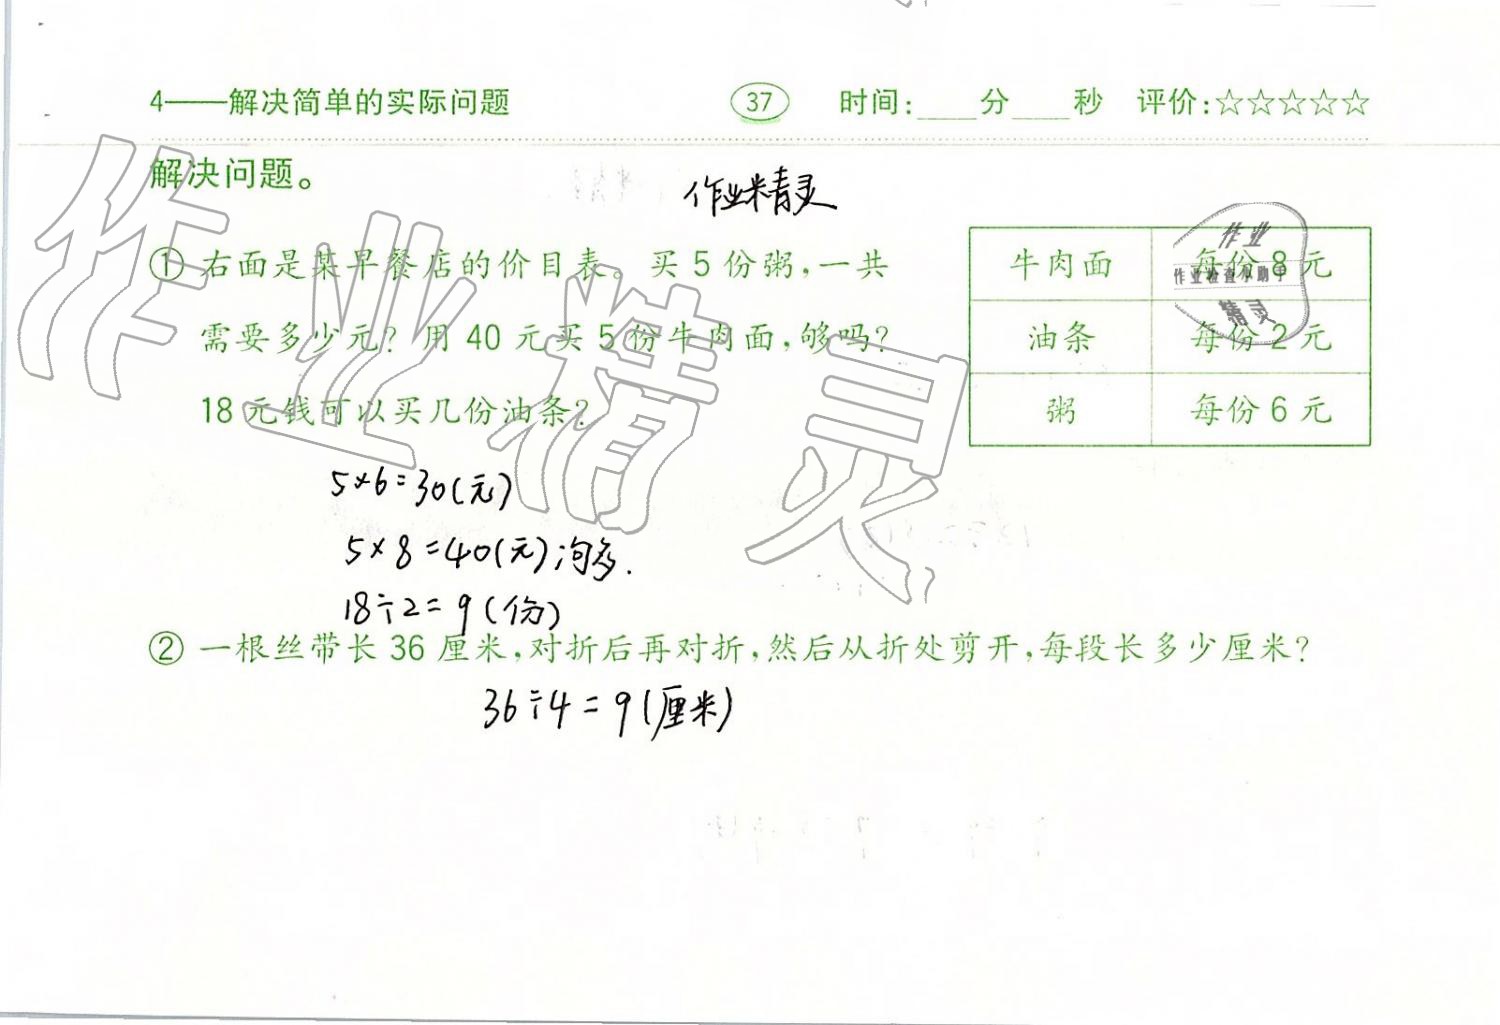 4——解决简单的实际问题 37 时间:____分____秒 评价:☆☆☆☆☆
解决问题。
作业精灵
① 右面是某早餐店的价目表。买5份粥,一共
需要多少元?用40元买5份牛肉面,够吗?
18元钱可以买几份油条?
牛肉面 每份8元
油条 每份2元
粥 每份6元
作业
作业检查小助手
精灵
作业精灵
5×6=30(元)
5×8=40(元)
18÷2=9(份)
② 一根丝带长36厘米,对折后再对折,然后从折处剪开,每段长多少厘米?
36÷4=9(厘米)